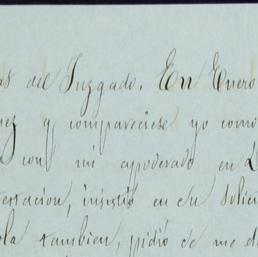 as del Juzgado. En Enero
nez y compareciese yo como
con mi apoderado en L
testacion, insistió en su solici
ola tambien, pidió se me d